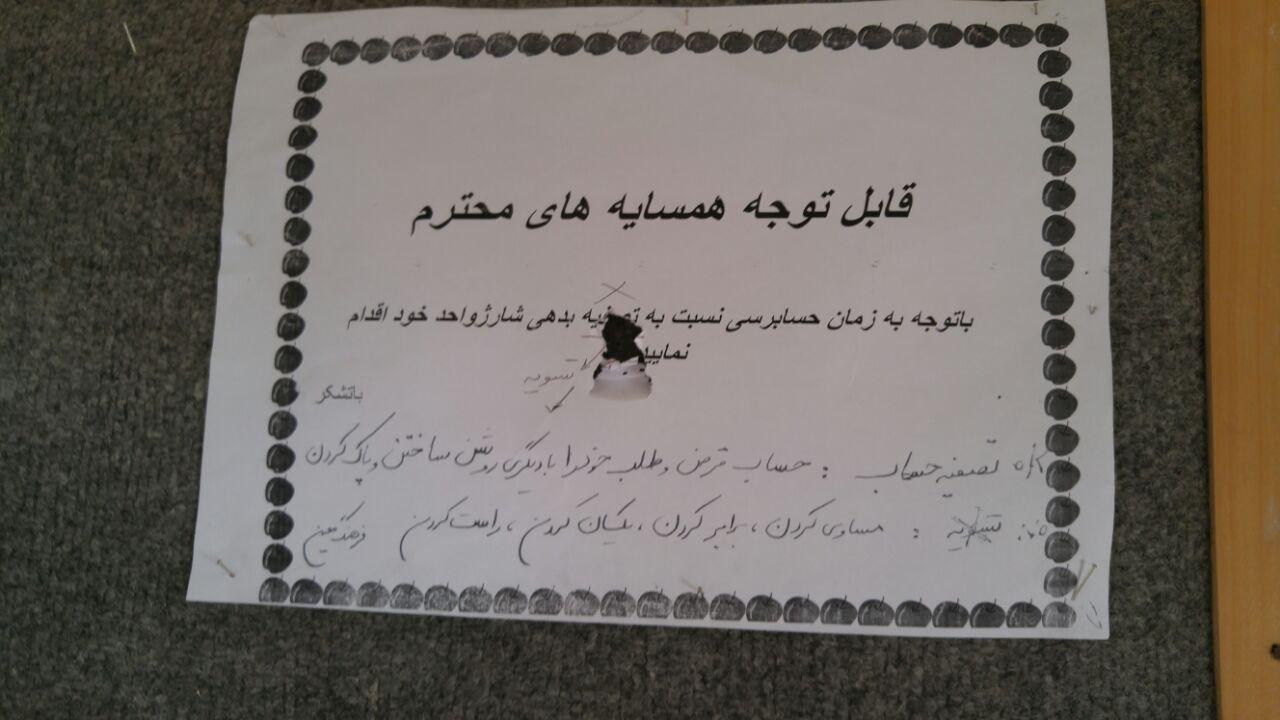 قابل توجه همسایه های محترم
باتوجه به زمان حسابرسی نسبت به تصفیه بدهی شارژواحد خود اقدام
نمایید
تسویه
باتشکر
تصفیه حساب : حساب قرض و طلب خود را با دیگری روشن ساختن و پاک کردن
تسویه : مساوی کردن ، برابر کردن ، یکسان کردن ، راست کردن فرهنگ معین